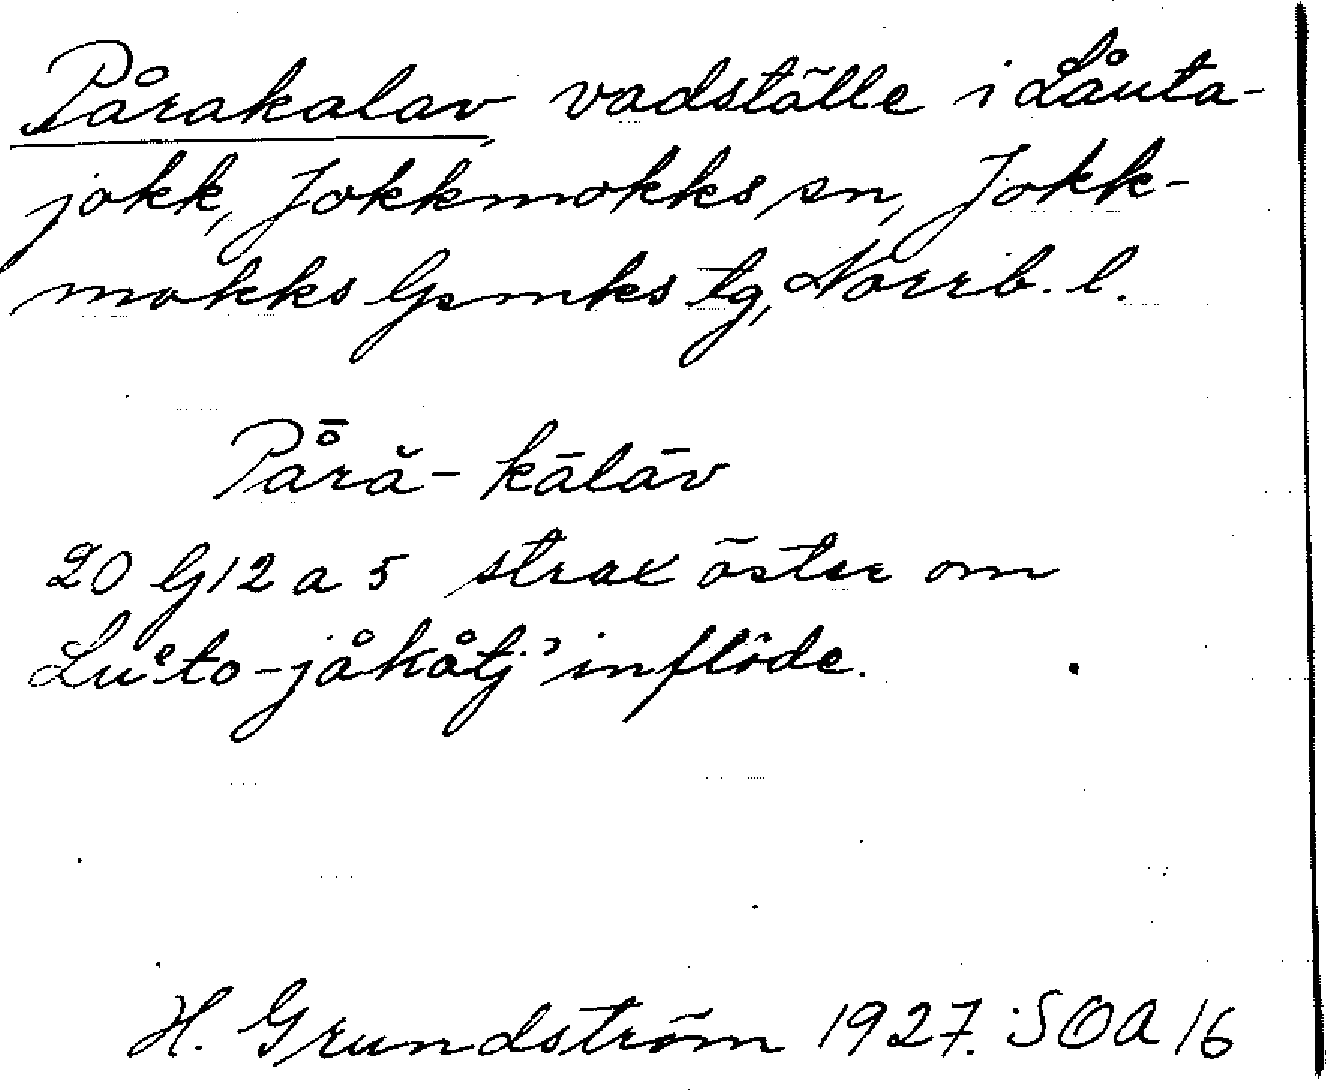 Pårakalav, vadställe i Låuta-
jokk, Jokkmokks sn, Jokk-
mokks lpmks tg, Norrb. l.
På̄ră-kālāv
20 G 12 a 5 strax öster om
Luͤto-jåkåtj' inflöde.
H. Grundström 1927. SOA 16